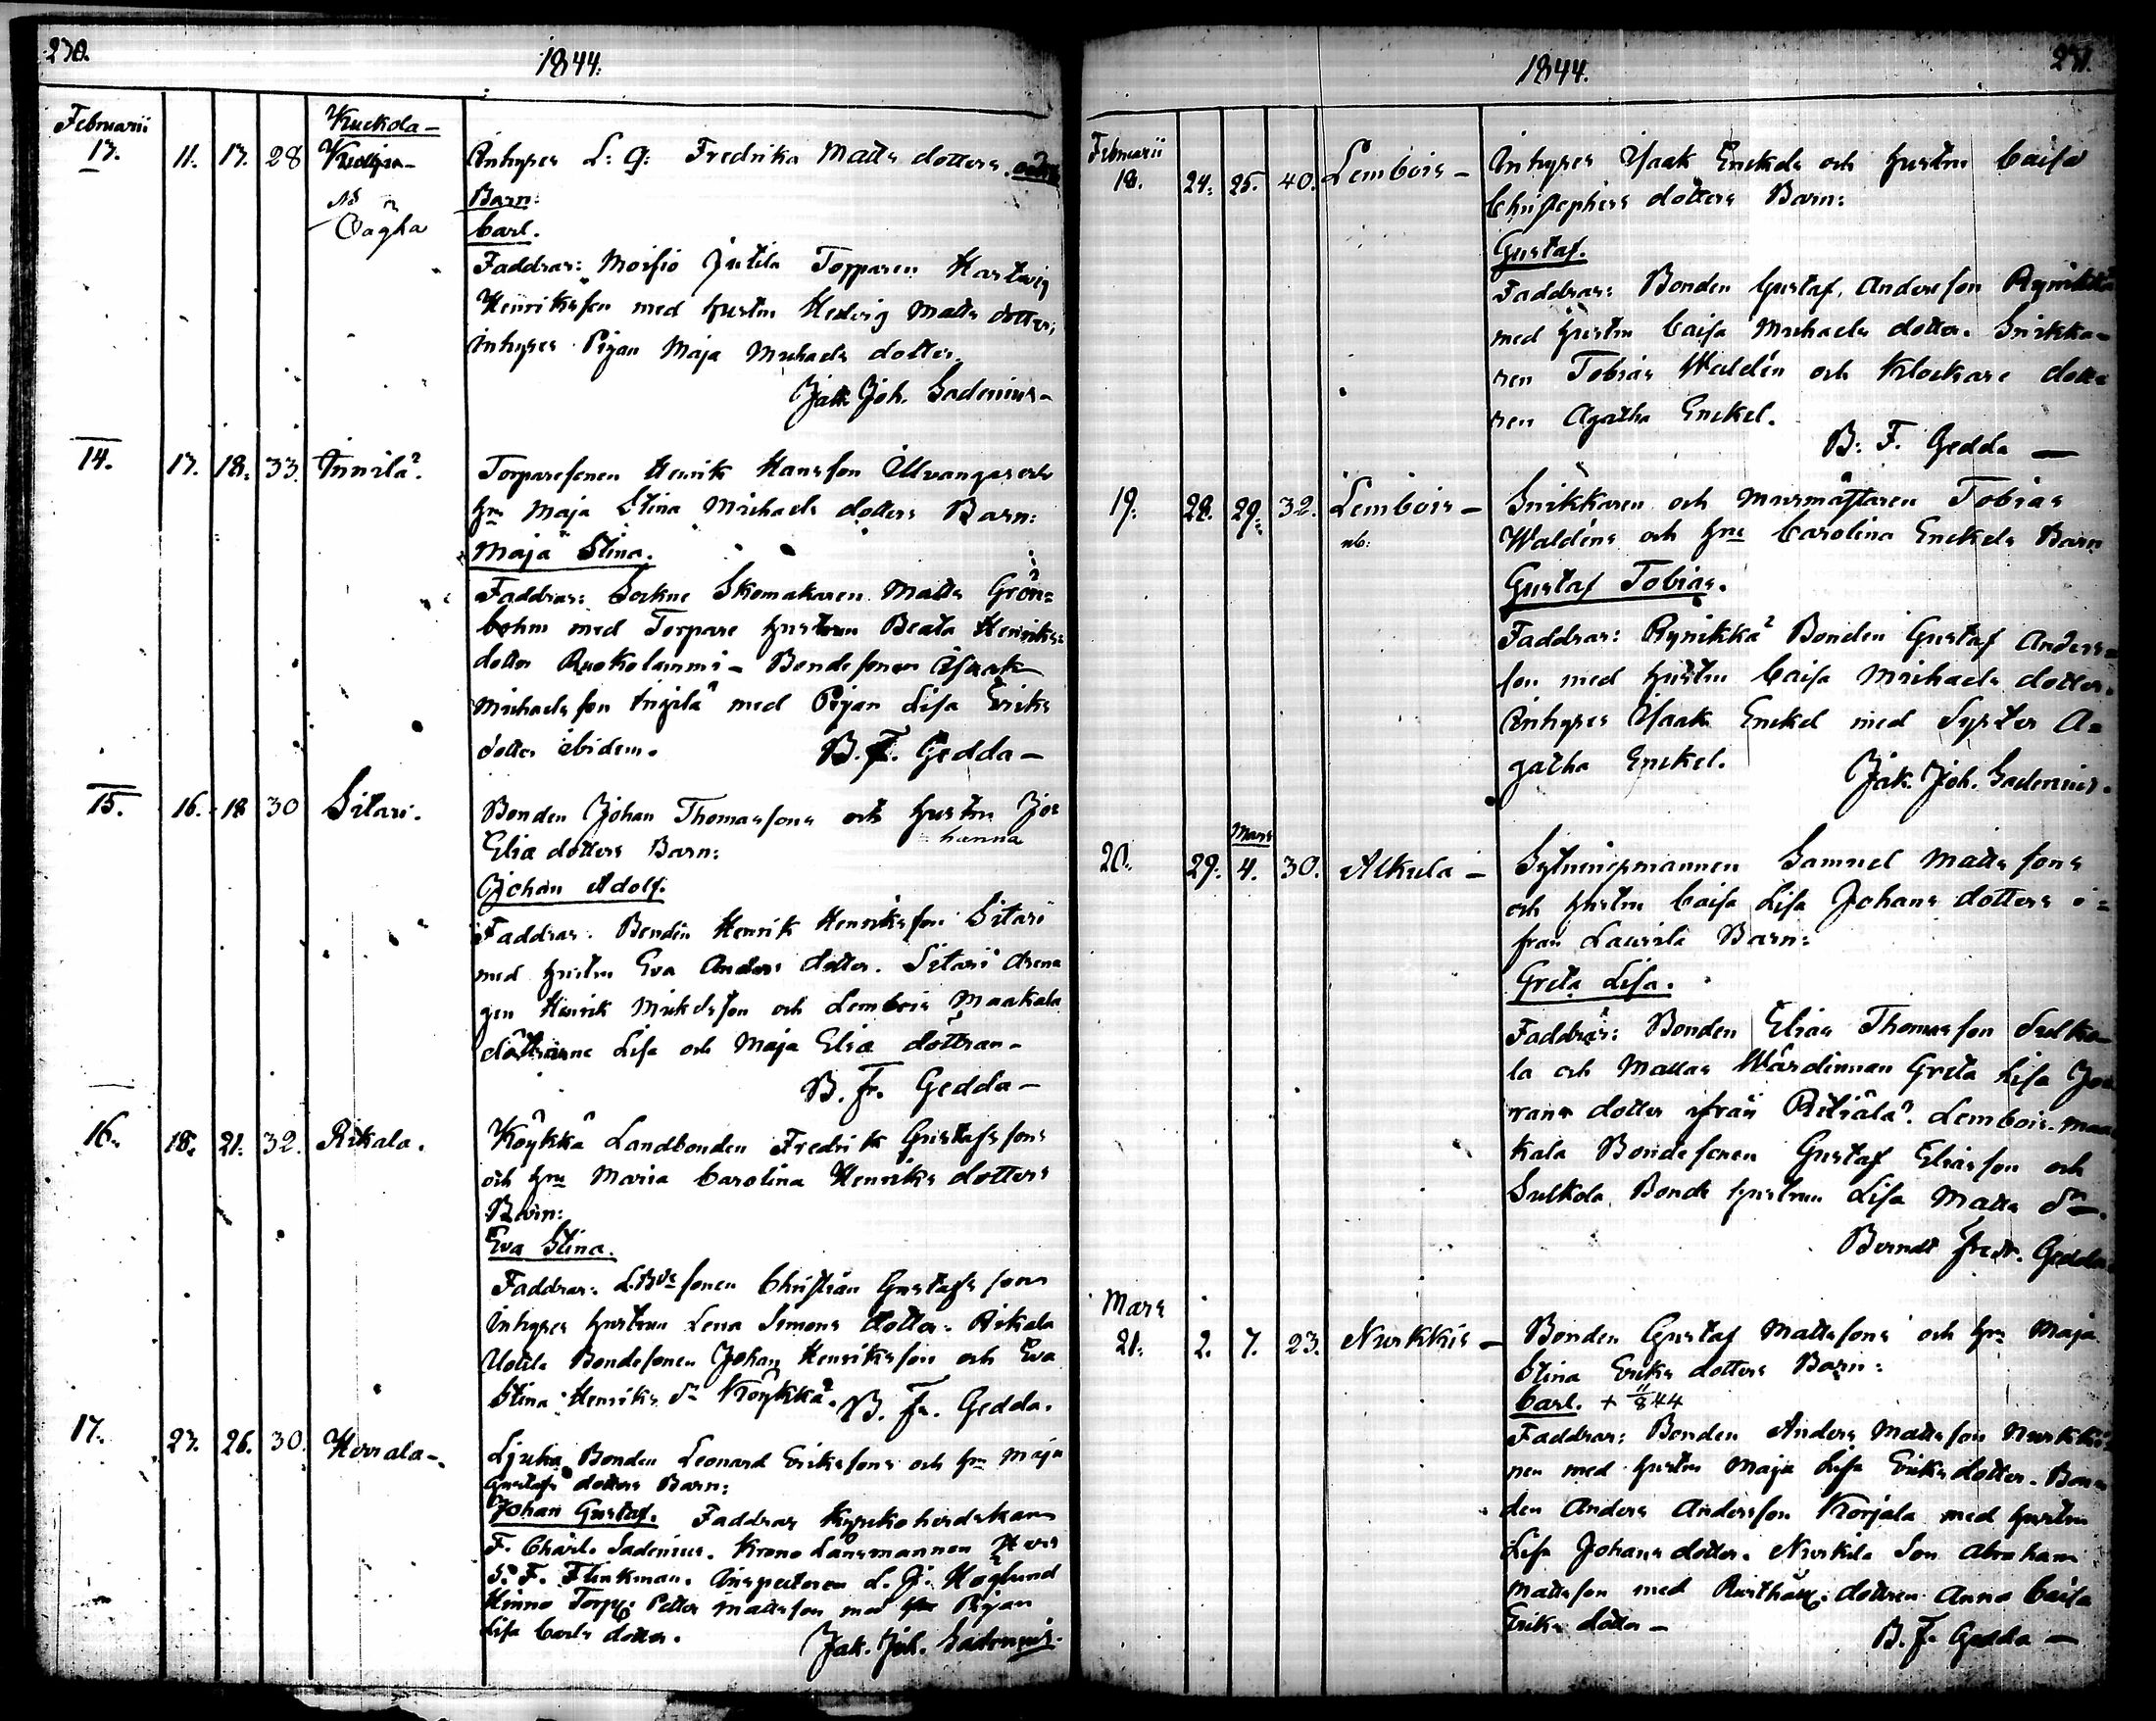 230.
1844.
Februarii
13. 11. 17. 28 Kuckola-
Inhyses L: q: Fredrika Matts dotters
Barn:
Carl.
Faddrar: Moisio Jutila Torparen Hartwig
Henriksson med hustru Hedvig Matts dotter,
inhyses Pigan Maja Michaels dotter.
Jak. Joh. Sadenius-
14. 17. 18. 33. Innilä.
Torparesonen Henrik Hansson
hru Maja Stina Michaels dotters Barn:
Maja Stina.
Faddrar: Sockne Skomakaren Matts Grön=
bohm med Torpare hustrun Beata Henriks=
dotter Ruokolammi- Bondesonen Isaak
Michaelsson med Pigan Lisa Eriks
dotter ibidem. B. F. Gedda-
15. 16. 18 30 Sitari.
Bonden Johan Thomassons och hustru Jo=
=hanna
Eliæ dotters Barn:
Johan Adolf.
Faddrar. Bonden Henrik Henriksson Sitari
med hustru Eva Anders dotter. Sitari dren
gen Henrik Mickelsson och Lembois Maakala
döttrarne Lisa och Maja Eliæ döttrar-
B. Fr. Gedda-
16. 18. 21. 32. Rikala.
Köykkä Landbonden Fredrik Gustafssons
och hru Maria Carolina Henriks dotters
Barn:
Eva Stina.
Faddrar: L.Bdesonen Christian Gustafsson
Inhyses hustrun Lena Simons dotter. Rikala
Uotila Bondesonen Johan Henriksson och Eva
Stina Henriks dr Köykkä. B. Fr. Gedda.
17. 23. 26. 30. Herrala-
Bonden Leonard Erikssons och hru Maja
Gustafs dotters Barn:
Johan Gustaf. Faddrar Kyrkoherdskan
F. Charl. Sadenius. Krono Länsmannen
S. F. Flinkman. Inspectoren L. J. Höglund
Hinno Torp. Petter Mattsson med Pigan
Lisa Carls dotter. Jak. Joh. Sadenius.
1844.
231.
Februarii
18. 24. 25. 40. Lembois-
Inhyses Isaak Enckels och hustru Caisa
Christophers dotters Barn:
Gustaf.
Faddrar: Bonden Gustaf Andersson Rynikkä
med hustru Caisa Michaels dotter. Snikka-
ren Tobias Waldén och Klockare dotte
ren Agatha Enckel.
B. F. Gedda-
19. 28. 29. 32. Lembois-
nb:
Snikkaren och Murmästaren Tobias
Waldéns och hru Carolina Enckels Barn
Gustaf Tobias.
Faddrar: Rynikkä Bonden Gustaf Anders=
son med hustru Caisa Michaels dotter.
Inhyses Isaak Enckel med Syster A=
gatha Enckel. Jak. Joh. Sadenius.
Mars
20. 29. 4. 30. Alkula-
Sytningsmannen Samuel Mattssons
och hustru Caisa Lisa Johans dotters i=
från Laurila Barn:
Greta Lisa.
Faddrar: Bonden Elias Thomasson Sulko
la och Mattas Wärdinnan Greta Lisa Jo
rans dotter ifrån Retiälä. Lembois Maa
kala Bondesonen Gustaf Eliasson och
Sulkola Bonde hustrun Lisa Matts dr.
Berndt Fredr. Gedda
Mars
21. 2. 7. 23. Nurkkis-
Bonden Gustaf Mattssons och hru Maja
Stina Eriks dotters Barn:
Carl. + 11/8 44
Faddrar: Bonden Anders Mattsson Nurkki
nen med hustru Maja Lisa Eriks dotter. Bon
den Anders Andersson Korjala med hustru
Lisa Johans dotter. Nurkila Son Abraham
Mattsson med dottren Anna Caisa
Eriks dotter-
B. F. Gedda-